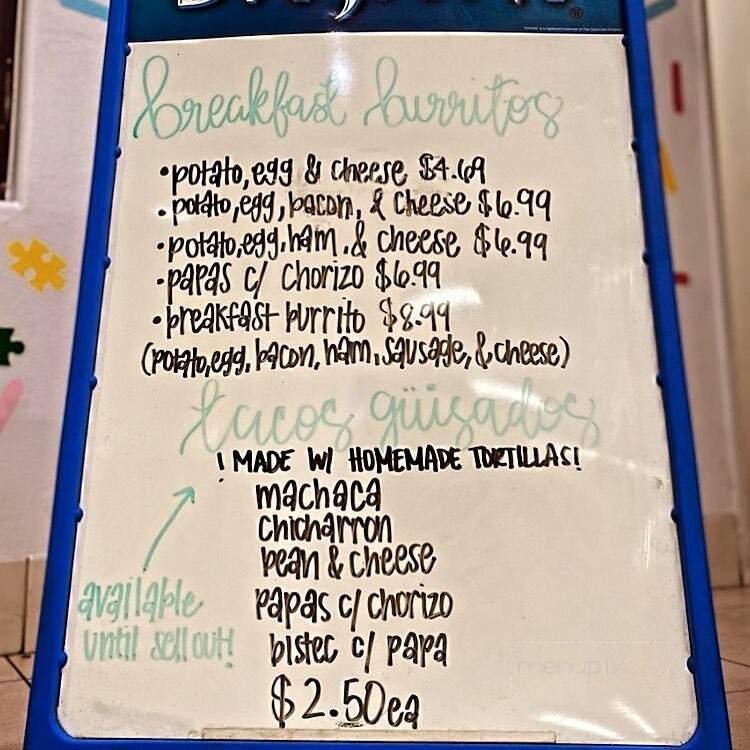 breakfast burritos
• potato, egg & cheese $4.69
• potato, egg, bacon, & cheese $6.99
• potato, egg, ham, & cheese $6.99
• papas c/ chorizo $6.99
• breakfast burrito $8.99
(potato, egg, bacon, ham, sausage, & cheese)
tacos güisados
¡MADE W/ HOMEMADE TORTILLAS!
machaca
chicharron
bean & cheese
papas c/ chorizo
bistec c/ papa
$2.50ea
available
until sellout!
menupix